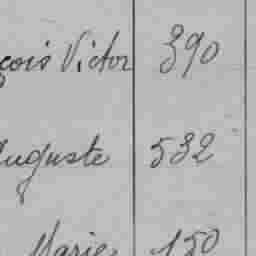 çois Victor 390
Auguste 532
Marie 150